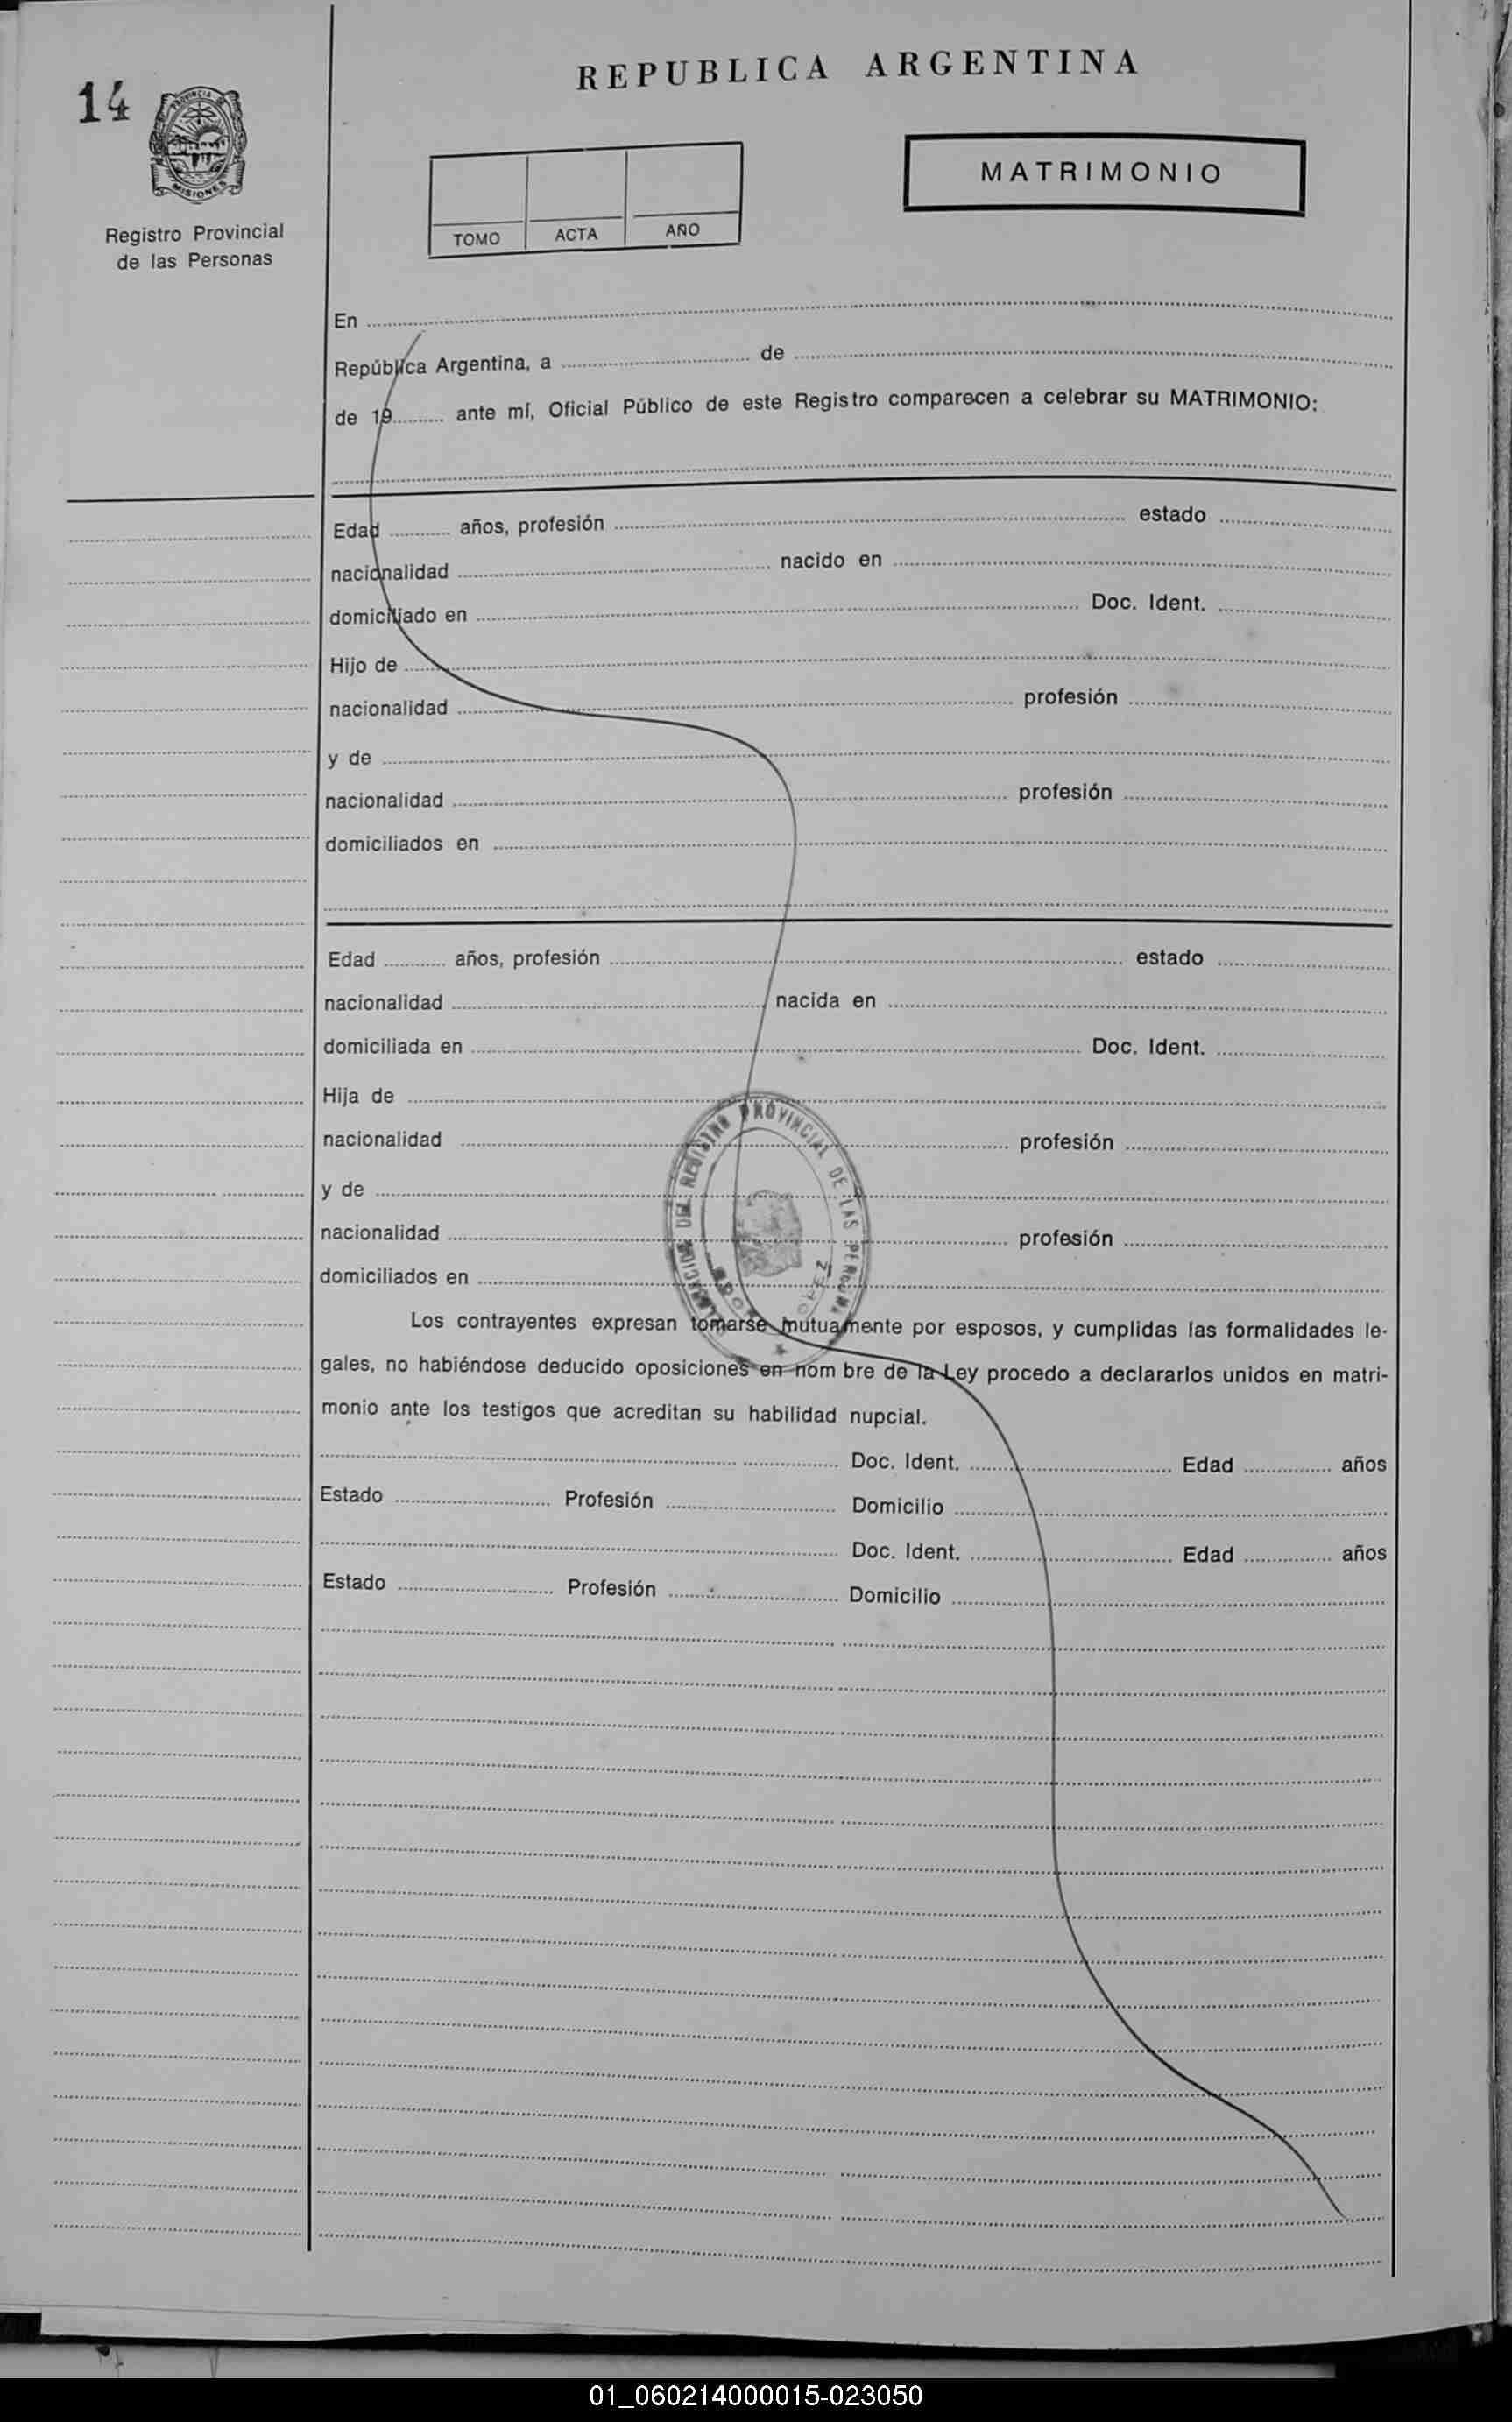 14
PROVINCIA DE
MISIONES
Registro Provincial
de las Personas
REPUBLICA ARGENTINA
TOMO ACTA AÑO
MATRIMONIO
En
República Argentina, a de
de 19 ante mí, Oficial Público de este Registro comparecen a celebrar su MATRIMONIO:
Edad años, profesión estado
nacionalidad nacido en
domiciliado en Doc. Ident.
Hijo de
nacionalidad profesión
y de
nacionalidad profesión
domiciliados en
Edad años, profesión estado
nacionalidad nacida en
domiciliada en Doc. Ident.
Hija de
nacionalidad profesión
y de
nacionalidad profesión
domiciliados en
DEL REGISTRO PROVINCIAL DE LAS
Los contrayentes expresan tomarse mutuamente por esposos, y cumplidas las formalidades le-
gales, no habiéndose deducido oposiciones en nom bre de la Ley procedo a declararlos unidos en matri-
monio ante los testigos que acreditan su habilidad nupcial.
Doc. Ident. Edad años
Estado Profesión Domicilio
Doc. Ident. Edad años
Estado Profesión Domicilio
01_060214000015-023050